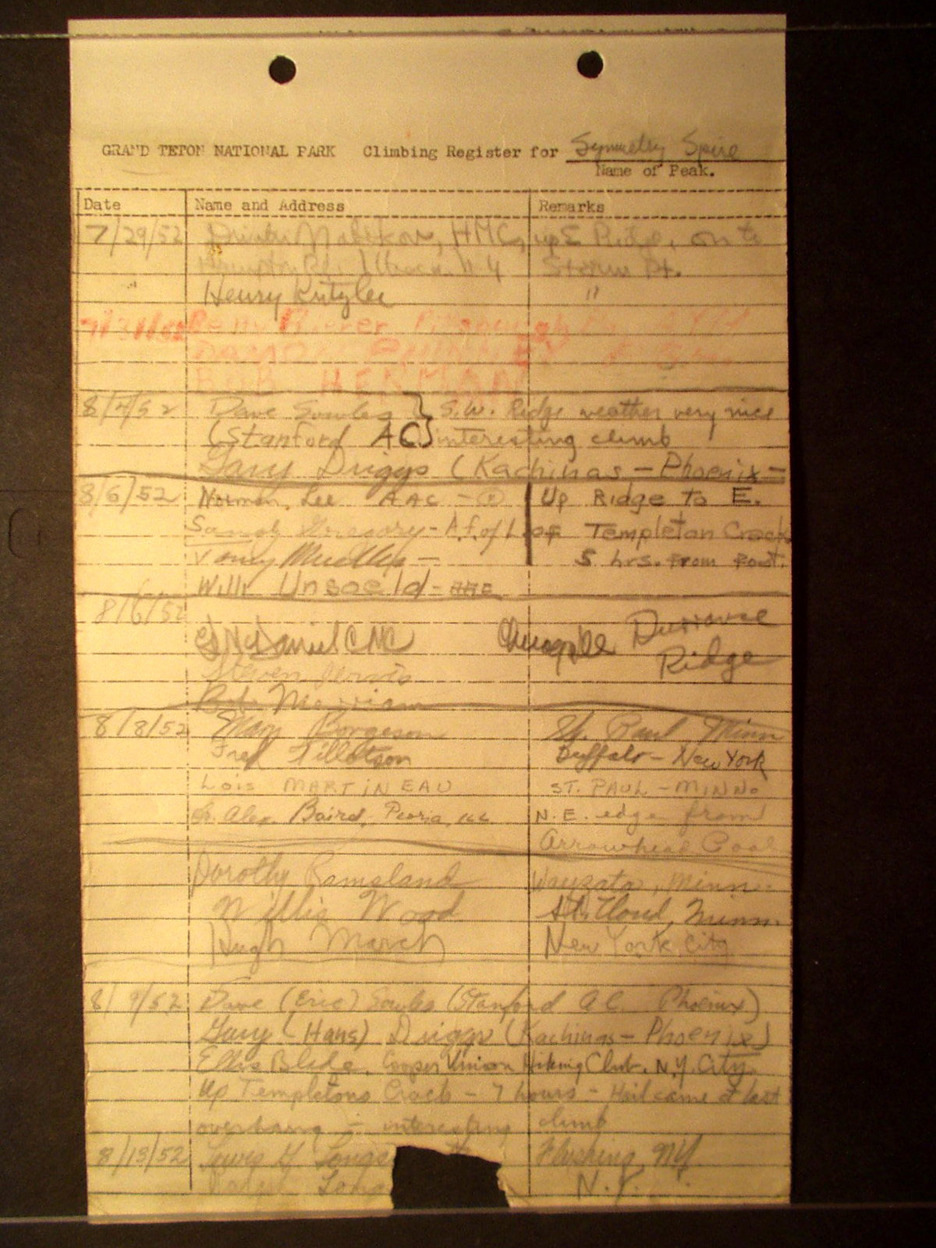 GRAND TETON NATIONAL PARK Climbing Register for Symmetry Spire
Name of Peak.
Date Name and Address Remarks
7/29/52 HMC, up E Ridge, on to
Storm Pt.
" Henry Kritzler "
7/31/52 Pittsburgh
DAMON PHINNEY
BOB HERMAN
8/4/52 Dave Sowles } S.W. Ridge weather very nice
(Stanford AC) interesting climb
Gary Driggs (Kachinas - Phoenix -
8/6/52 Norman Lee AAC - Up Ridge to E.
Gregory - A.F. of L. of Templeton Crack
5 hrs. from boat.
Willi Unsoeld - AAC
8/6/52
Ed McDaniel CMC Durrance
Steven Jervis Ridge
Bob Merriam
8/8/52 Mary Borgeson St. Paul, Minn
Fred Tillotson Buffalo - New York
Lois MARTINEAU ST. PAUL - MINN.
Alex Baird, Peoria, Ill. N.E. edge from
Arrowhead Pool
Dorothy Ramsland Wayzata, Minn.
Willis Wood St. Cloud, Minn.
Hugh March New York City
8/9/52 Dave (Eric) Sowles (Stanford A.C. Phoenix)
Gary (Hans) Driggs (Kachinas - Phoenix)
Ellis Blade, Cooper Union Hiking Club, N.Y. City
Up Templetons Crack - 7 hours - Hail came at last
overhang - interesting climb
8/13/52 Flushing NY
N.Y.